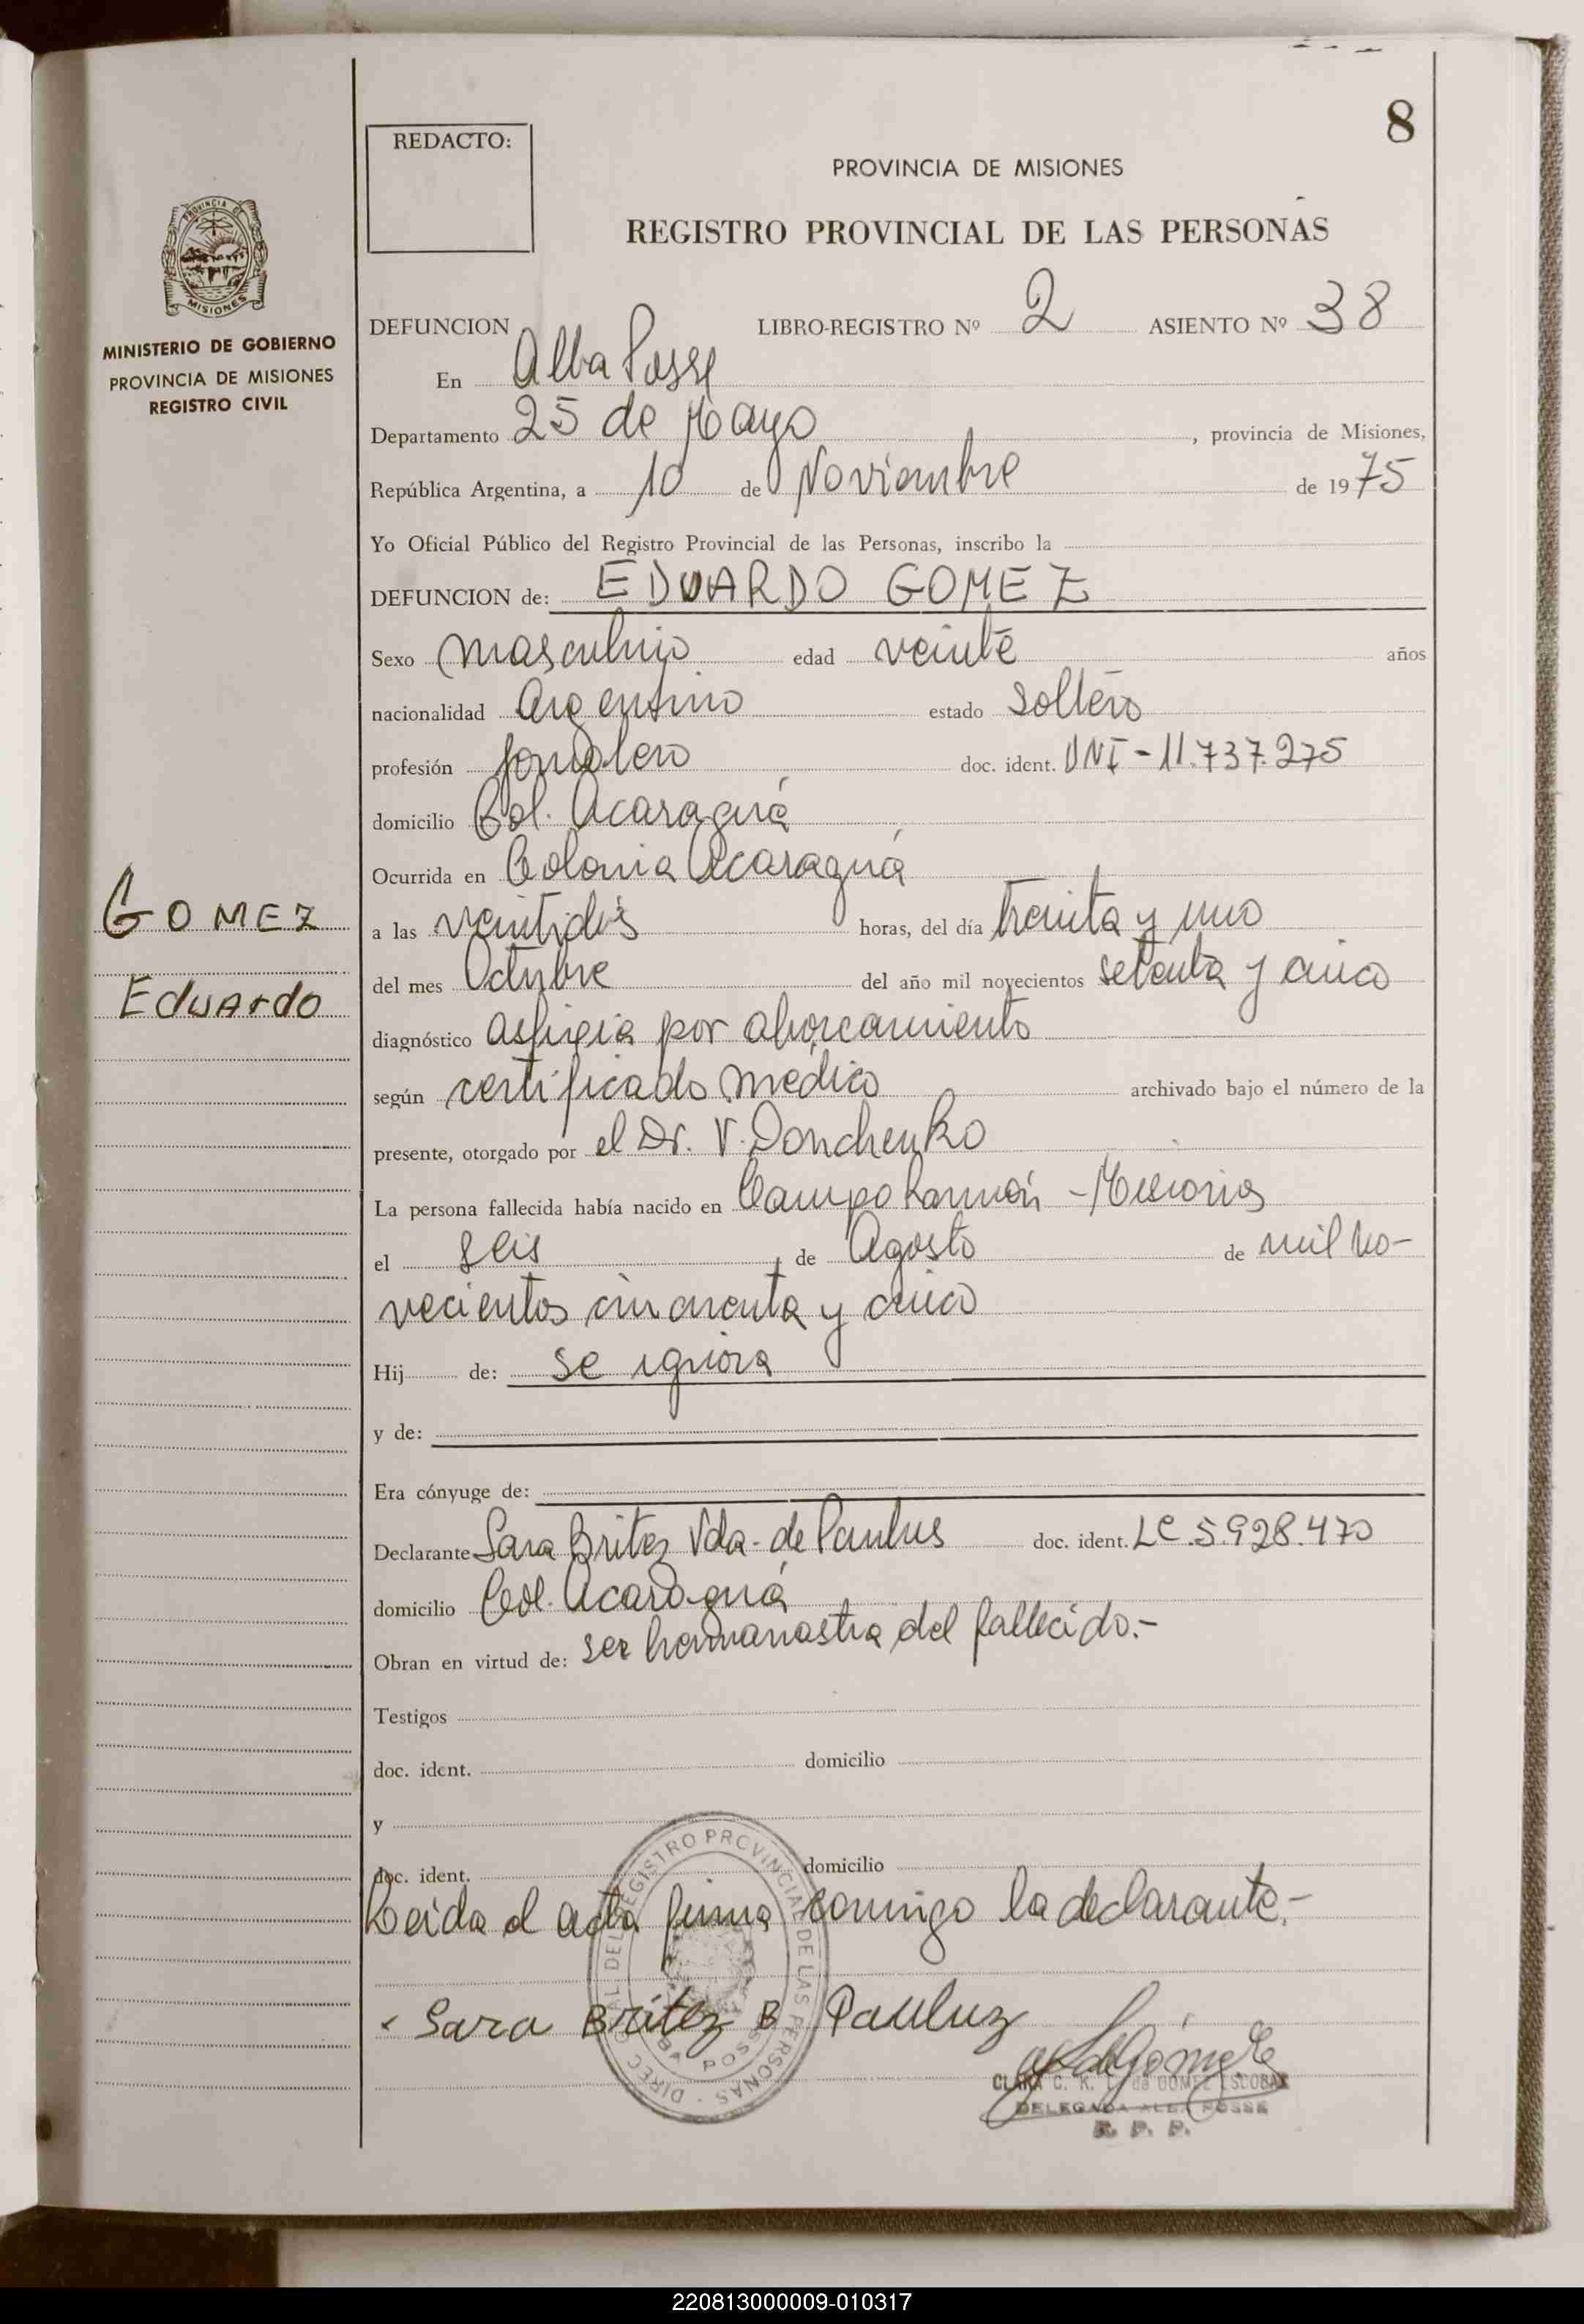 8
REDACTO:
PROVINCIA DE MISIONES
REGISTRO PROVINCIAL DE LAS PERSONAS
PROVINCIA DE
MISIONES
MINISTERIO DE GOBIERNO
PROVINCIA DE MISIONES
REGISTRO CIVIL
DEFUNCION LIBRO-REGISTRO Nº 2 ASIENTO Nº 38
En Alba Posse
Departamento 25 de Mayo, provincia de Misiones,
República Argentina, a 10 de Noviembre de 1975
Yo Oficial Público del Registro Provincial de las Personas, inscribo la
DEFUNCION de: EDUARDO GOMEZ
Sexo masculino edad veinte años
nacionalidad Argentino estado Soltero
profesión Jornalero doc. ident. DNI - 11.737.275
domicilio Col. Acaraguá
Ocurrida en Colonia Acaraguá
GOMEZ
Eduardo
a las veintidós horas, del día treinta y uno
del mes Octubre del año mil novecientos setenta y cinco
diagnóstico asfixia por ahorcamiento
según certificado médico archivado bajo el número de la
presente, otorgado por el Dr. V. Donchenko
La persona fallecida había nacido en Campo Ramón - Misiones
el seis de Agosto de mil no-
vecientos cincuenta y cinco
Hij de: se ignora
y de:
Era cónyuge de:
Declarante Sara Britez Vda. de Paulus doc. ident. LC.5.928.470
domicilio Col. Acaraguá
Obran en virtud de: ser hermanastra del fallecido.-
Testigos
doc. ident. domicilio
y
doc. ident. domicilio
Leida el acta firma conmigo la declarante.-
DIREC AL DEL REGISTRO PROVINCIAL DE LAS PERSONAS
BA POSS
Sara Britez B Pauluz
CLARA C. K. L. de GOMEZ ESCOBAR
DELEGADA ALBA POSSE
R. P. P.
220813000009-010317